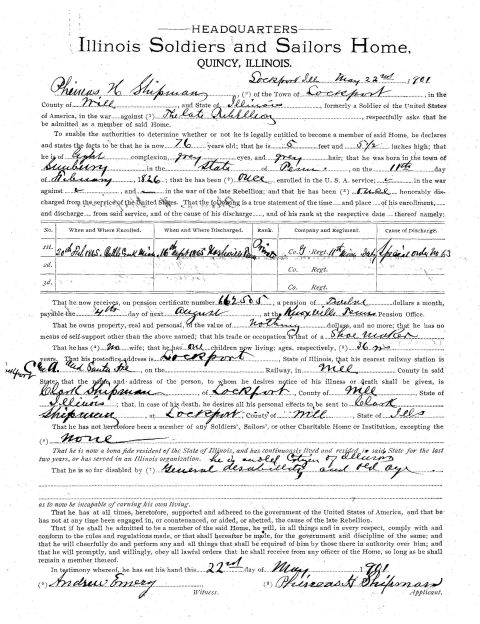 HEADQUARTERS
Illinois Soldiers and Sailors Home,
QUINCY, ILLINOIS.
Lockport Ill May 22nd 1901
Phineas H Shipman, of the Town of Lockport in the
County of Will, and State of Illinois, formerly a Soldier of the United States
of America, in the war against The late Rebellion, respectfully asks that he
be admitted as a member of said Home.
To enable the authorities to determine whether or not he is legally entitled to become a member of said Home, he declares
and states the facts to be that he is now 76 years old; that he is 5 feet and 5½ inches high; that
he is of light complexion, grey eyes, and grey hair; that he was born in the town of
Sunbury in the State of Penn, on the 11th day
of February 1826; that he has been once enrolled in the U. S. A. service; in the war
against and in the war of the late Rebellion; and that he has been once honorably dis-
charged from the service of the United States. That the following is a true statement of the time and place of his enrollment,
and discharge from said service, and of the cause of his discharge, and of his rank at the respective date thereof namely:
No. When and Where Enrolled. When and Where Discharged. Rank. Company and Regiment. Cause of Discharge.
1st. 20th Feb 1865. 16th Sept 1865 Nashville Co. G Regt. 11th Special order No 63
2d. Co. Regt.
3d. Co. Regt.
That he now receives, on pension certificate number 662505, a pension of Twelve dollars a month,
payable the 4th day of next August at the Knoxville Tenn Pension Office.
That he owns property, real and personal, of the value of Nothing dollars, and no more; that he has no
means of self-support other than the above named; that his trade or occupation is that of Shoe Maker
That he has no wife; that he has one children now living; ages, respectively, 36
years. That his postoffice address is Lockport, State of Illinois, that his nearest railway station is
C & A and Santa Fe on the Railway, in Will County in said
State; that the name and address of the person, to whom he desires notice of his illness or death shall be given, is
Clark Shipman of Lockport, County of Will State of
Illinois; that, in case of his death, he desires all his personal effects to be sent to Clark
Shipman at Lockport, County of Will, State of Ills
That he has not heretofore been a member of any Soldiers', Sailors', or other Charitable Home or Institution, excepting the
None
That he is now a bona fide resident of the State of Illinois, and has continuously lived and resided in said State for the last
two years, or has served in an Illinois organization. he is an old Citizen of Illinois
That he is so far disabled by General disability and old age
as to now be incapable of earning his own living.
That he has at all times, heretofore, supported and adhered to the government of the United States of America, and that he
has not at any time been engaged in, or countenanced, or aided, or abetted, the cause of the late Rebellion.
That if he shall be admitted to be a member of the said Home, he will, in all things and in every respect, comply with and
conform to the rules and regulations made, or that shall hereafter be made, for the government and discipline of the same; and
that he will cheerfully do and perform any and all things that shall be required of him by those there in authority over him; and
that he will promptly, and willingly, obey all lawful orders that he shall receive from any officer of the Home, so long as he shall
remain a member thereof.
In testimony whereof, he has set his hand this 22nd day of May 1901
Andrew Emery Phineas H Shipman
Witness. Applicant.